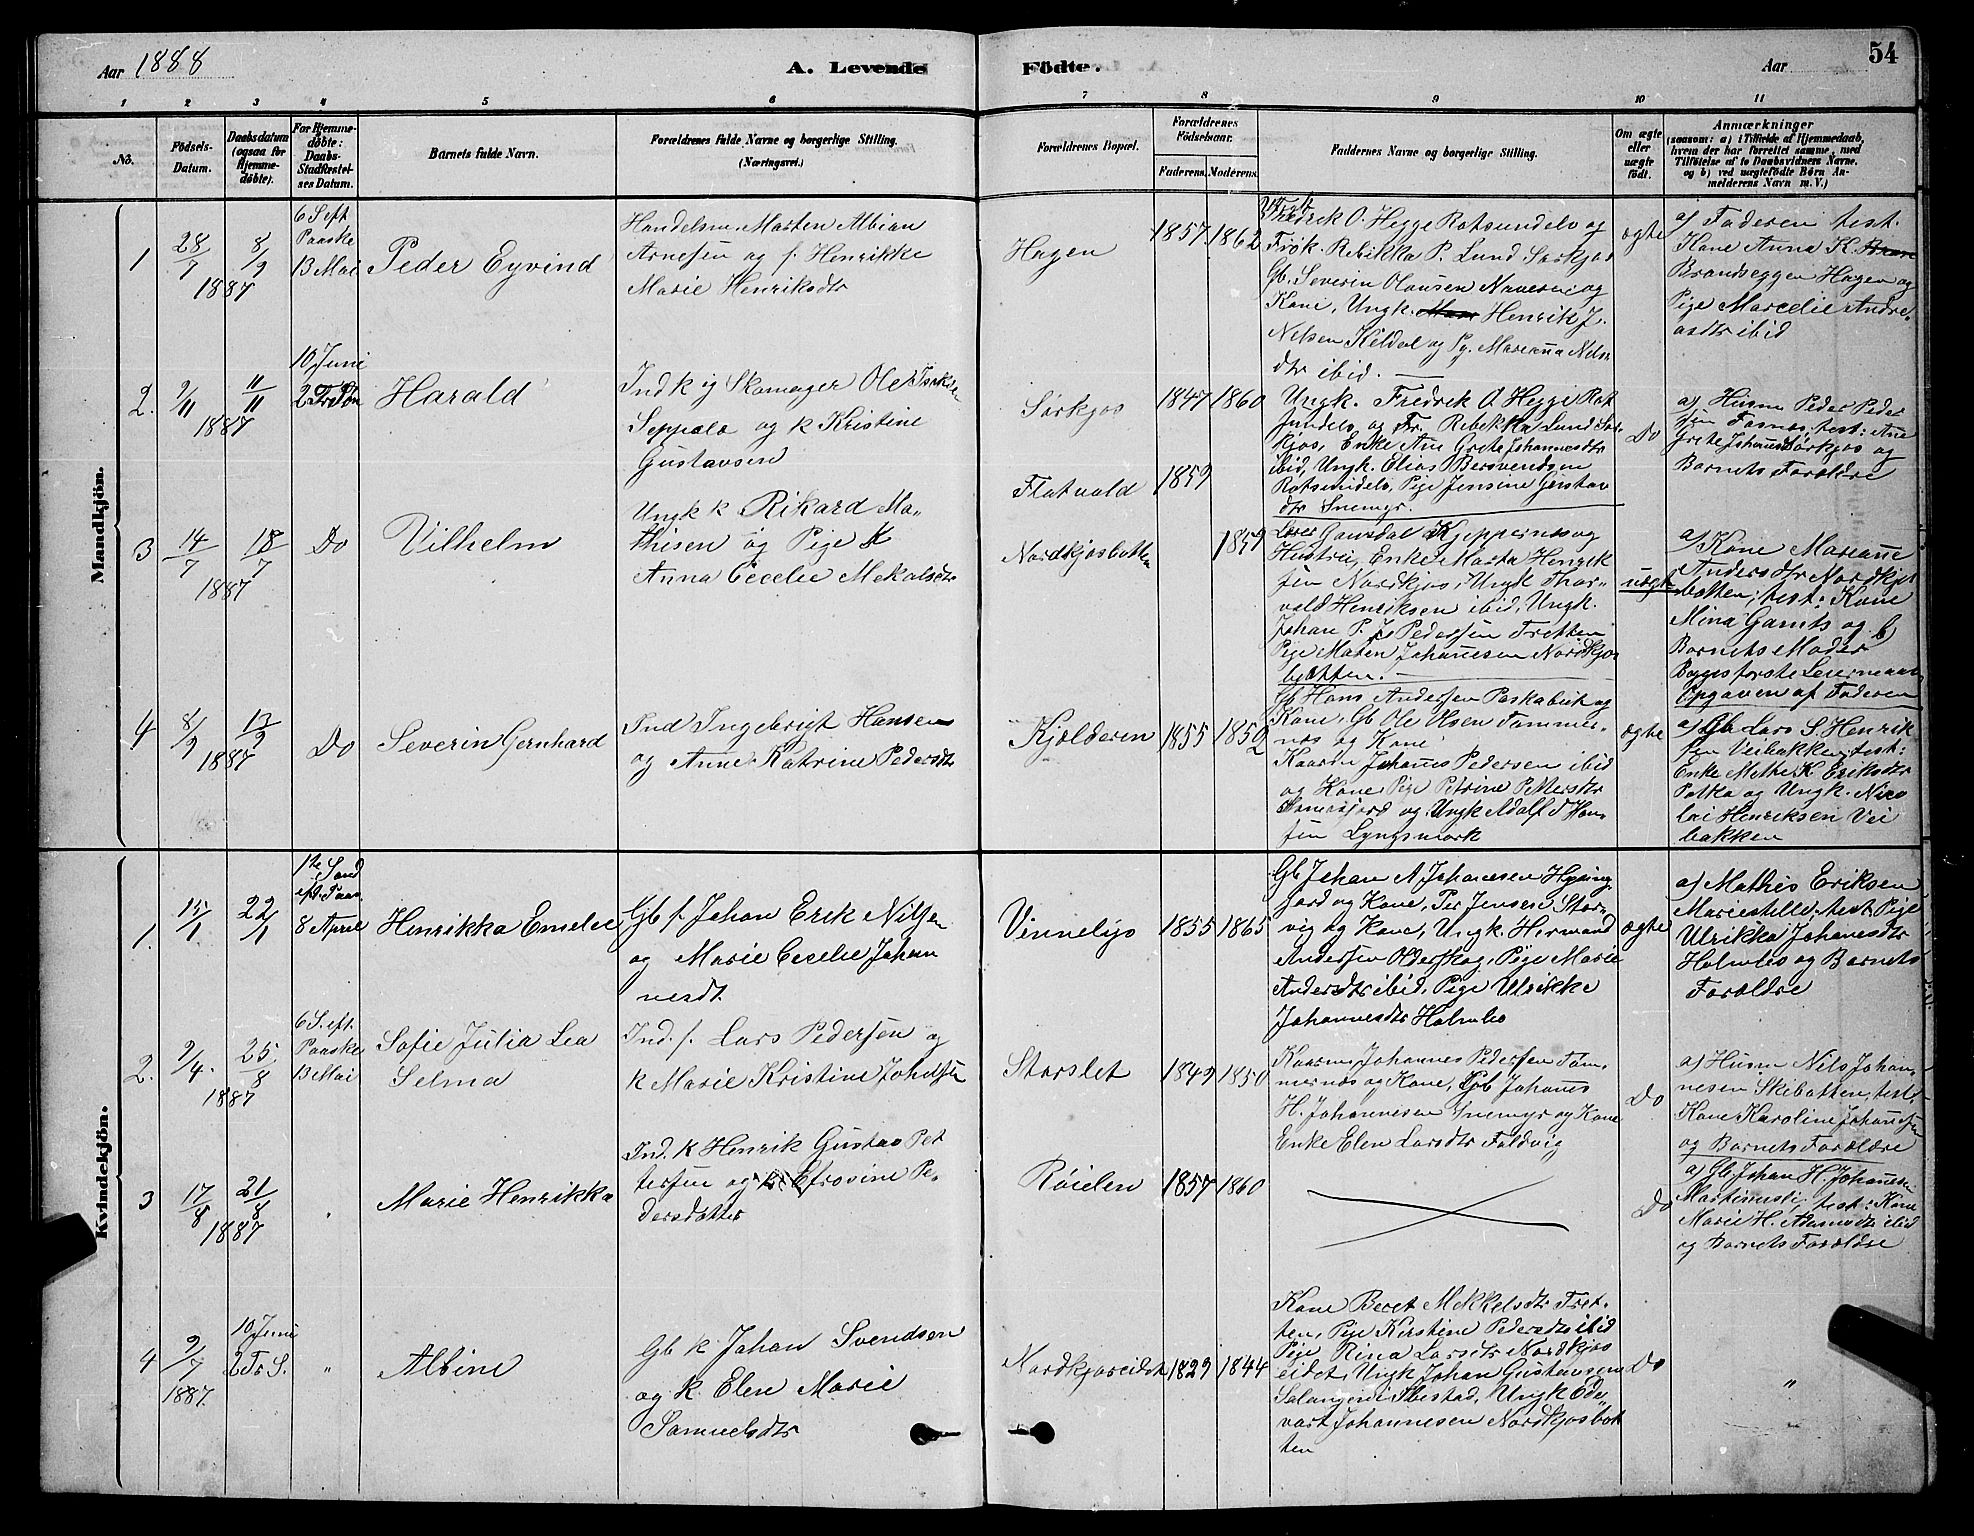 Aar 1888
A. Levende Födte.
Aar
54
1 2 3 4 5 6 7 8 9 10 11
No.
Födsels-Datum.
Daabsdatum (ogsaa for Hjemme-döbte).
For Hjemme-döbte: Daabs-Stadfæstel-ses Datum.
Barnets fulde Navn.
Forældrenes fulde Navne og borgerlige Stilling. (Næringsvei.)
Forældrenes Bopæl.
Forældrenes Födselsaar.
Faderens. Moderens.
Faddernes Navne og borgerlige Stilling.
Om ægte eller uægte födt.
Anmærkninger
(saasom: a) i Tilfælde af Hjemmedaab,
hvem der har forrettet samme, med
Tilföielse af to Daabsvidners Navne,
og b) ved uægtefödte Börn An-
melderens Navn m. V.)
Mandkjön.
1
28/7 1887
8/9
6 S eft
Paaske
13 Mai
Peder Eyvind
Handelsm. Marten Albian
Arnesen og f. Henrikke
Marie Henriksdtr
Hagen
1857 1862
Fredrik O. Hegge Rotsundelv og
Frøk. Rebikka P. Lund Sørkjos
Gb. Severin Olausen Naveren og
Kone, Ungk. Henrik J.
Nilsen Kildal og Pg. Marianna Nels
dtr ibid.
ægte
a) Faderen test.
Kone Anna K.
Brandseggen Hagen og
Pige Marcelie Andre-
asdtr ibid
2.
9/11 1887
11/11
10 Juni
Harald
Ind k og Skomager Ole Isaksen
Seppälä og k Kristine
Gustavsen
Sørkjos
1847 1860
Ungk. Fredrek O. Heggi Rot
sundelv og Fr. Rebekka Lund Sør-
kjos, Enke Ane Grete Johannesdtr
ibid, Ungk. Elias Bersvendsen
Rotsundelv, Pige Jensine Gustav
dtr Snemyr.
Do
a) Husm Peder Peder
sen
Grete Johannesdtr Sørkjos og
Barnets Foræeldre
3
14/7 1887
18/7
Do
Vilhelm
Ungk k Rikard Ma-
thisen og Pige K
Anna Cecelie Mekalsdtr
Flatvold
Nordkjosbotten
1859
1859
Hustru, Enke Marta Henrik
sen Nordkjos, Ungk Thor-
vald Henriksen ibid, Ungk.
Johan P. Pedersen Tretten
Pige Maten Johannesen Nordkjos
botten.
uægte
a) Kone Marianne
Andersdtr Nordkjos
botten; test: Kone
Mina Gamts og b)
Barnets Moder
Begges første Leiermaal
Opgaven af Faderen
4
8/9 1887
17/9
Do
Severin Gernhard
Ind Ingebrigt Hansen
og Anne Katrine Pedersdtr
Kjelderen
1855 1852
Gb Hans Andersen Paskabut og
Kone, Gb Ole Olsen Tammer-
nes og Kone
Kaarm Johannes Pedersen ibid
og Kone, Pige Petrine Pettersdtr
og Ungk Adolf d Han-
sen Lyngsmark
ægte
a) Gb Lars S. Henrik
sen Veibakken, test:
Enke Methe K Eriksdtr
Patka og Ungk. Nico
lai Henriksen Vei
bakken
Kvindekjön.
1.
15/1
22/1
1ste Sønd
eft Paas
8 April
Henrikka Emelie
Gb f. Johan Erik Nilsen
og Marie Cecelie Johan
nesdt.
Vinnelys
1855 1865
Gb Johan A Johannesen Hysing-
jord og Kone, Per Jensen Stor-
vig og Kone, Ungk. Hermand
Andersen Olderskog, Pige Marie
Andersdtr ibid, Pige Ulrikke
Johannesdtr Holmbo
ægte
a) Mathis Eriksen
Mariestille, test: Pige
Ulrikka Johanesdtr
Holmbo og Barnets
Foræeldre
2.
9/4 1887
25/8
6 S. eft.
Paaske
13 Mai
Sofie Julia Lea
Selma
Ind. f. Lars Pedersen og
k Marie Kristine Johdsen
Storslet
1849 1850
Kaarm Johannes Pedersen Tam-
mernæs og Kone, Gb Johanes
H. Johannesen Snemyr og Kone
Enke Elen Larsdtr Foldvig
Do
a) Husm Nils Johan-
nesen Skibotten, test.
Kone Karoline Johannesen
og Barnets Foræeldre
3
17/8 1887
21/8
Marie Henrikka
Ind. K Henrik Gustav Pet
tersen og k Efrosine Pe-
dersdatter
Røielen
1857 1860
Do
a) Gb Johan H. Johannesen
test: Kone
Marie H. Adamsdtr ibid
og Barnets Foræeldre
4
9/7 1887.
10 Juni
2 Tr S.
"
Albine
Gb k Johan Svendsen
og k. Elen Marie
Samuelsdtr
Nordkjoseidet
1829 1844
Kone Beret Mekkelsdtr Tret-
ten, Pige Kirstine Pedersdtr ibid
Pige Rina Larsdtr Nordkjos
eidet, Ungk Johan Gustavsen
Salangen Ibestad, Ungk Ed-
vart Johannesen Nordkjosbot
ten
Do
"